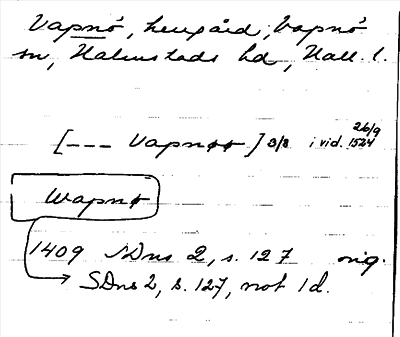 Vapnö, herrgård, Vapnö
sn, Halmstads hd, Hall. l.
[--- Vapnøø] 3/8 i vid. 26/9 1524
Wapnø
1409 SDns 2, s. 127 orig.
SDns 2, s. 127, not 1 d.